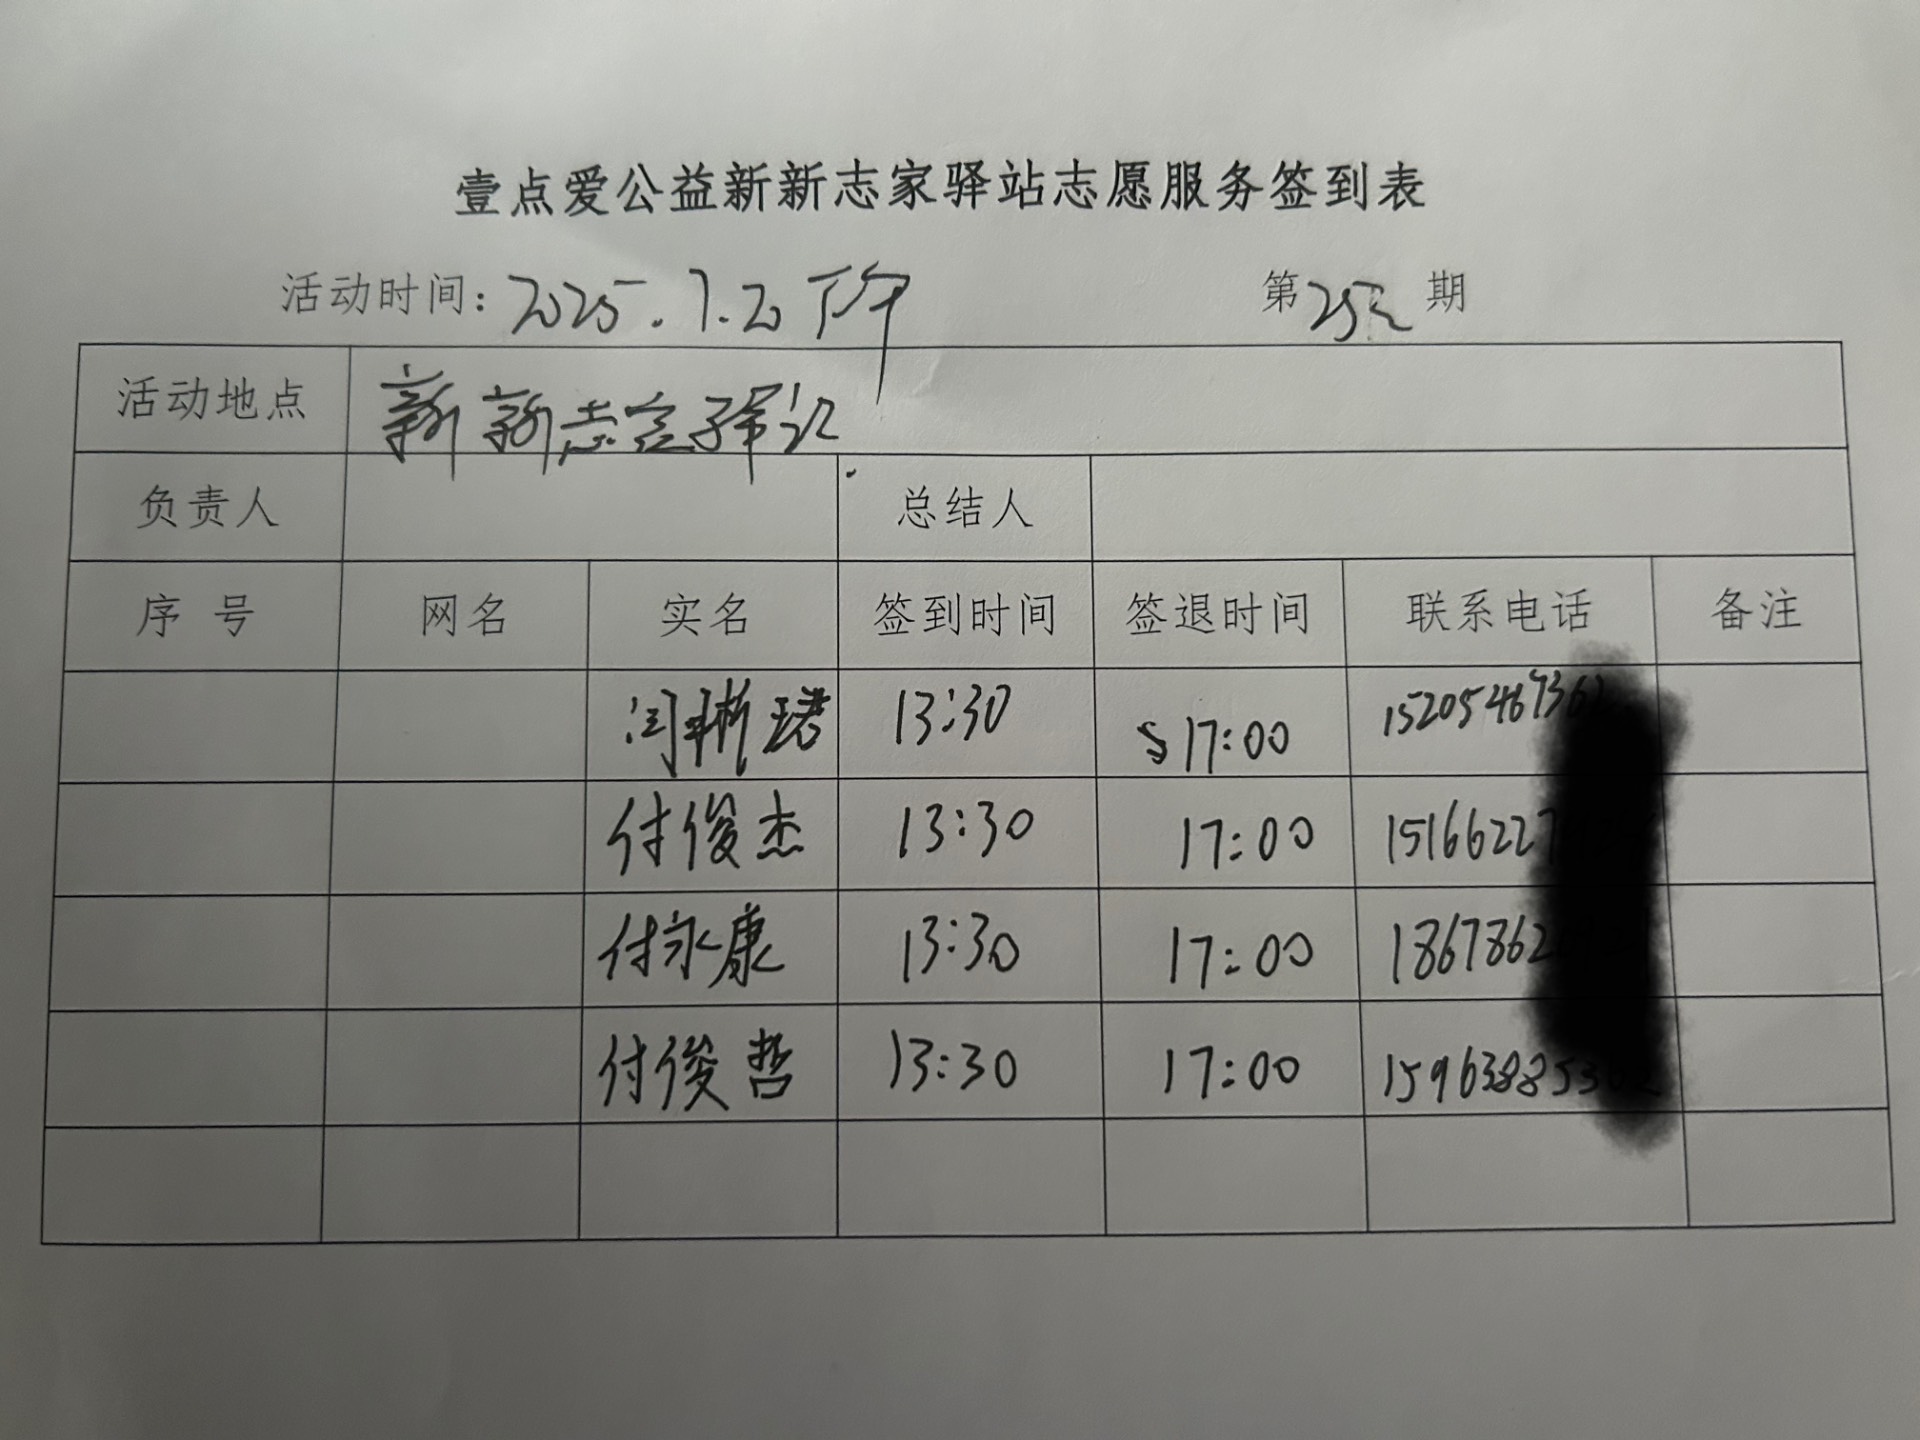 壹点爱公益新新志家驿站志愿服务签到表
活动时间：2025.7.20 下午 第252期
活动地点 新新志家驿站
负责人 总结人
序号 网名 实名 签到时间 签退时间 联系电话 备注
闫晰珺 13:30 17:00
付俊杰 13:30 17:00 1516622
付永康 13:30 17:00 1867862
付俊哲 13:30 17:00 159638853